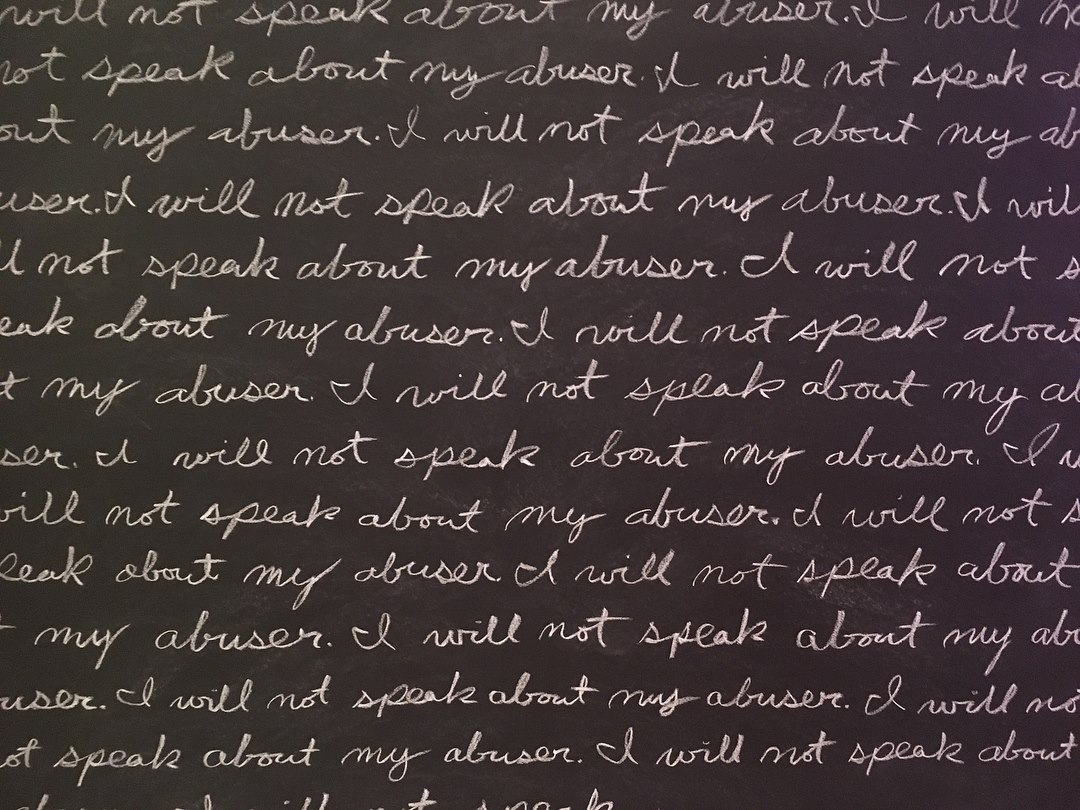 will not speak about my abuser. I will
not speak about my abuser. I will not speak
out my abuser. I will not speak about my ab
user. I will not speak about my abuser. I wil
ll not speak about my abuser. I will not s
eak about my abuser. I will not speak about
t my abuser. I will not speak about my ab
ser. I will not speak about my abuser. I w
will not speak about my abuser. I will not s
peak about my abuser. I will not speak about
t my abuser. I will not speak about my abu
user. I will not speak about my abuser. I will not
not speak about my abuser. I will not speak about
I will not speak